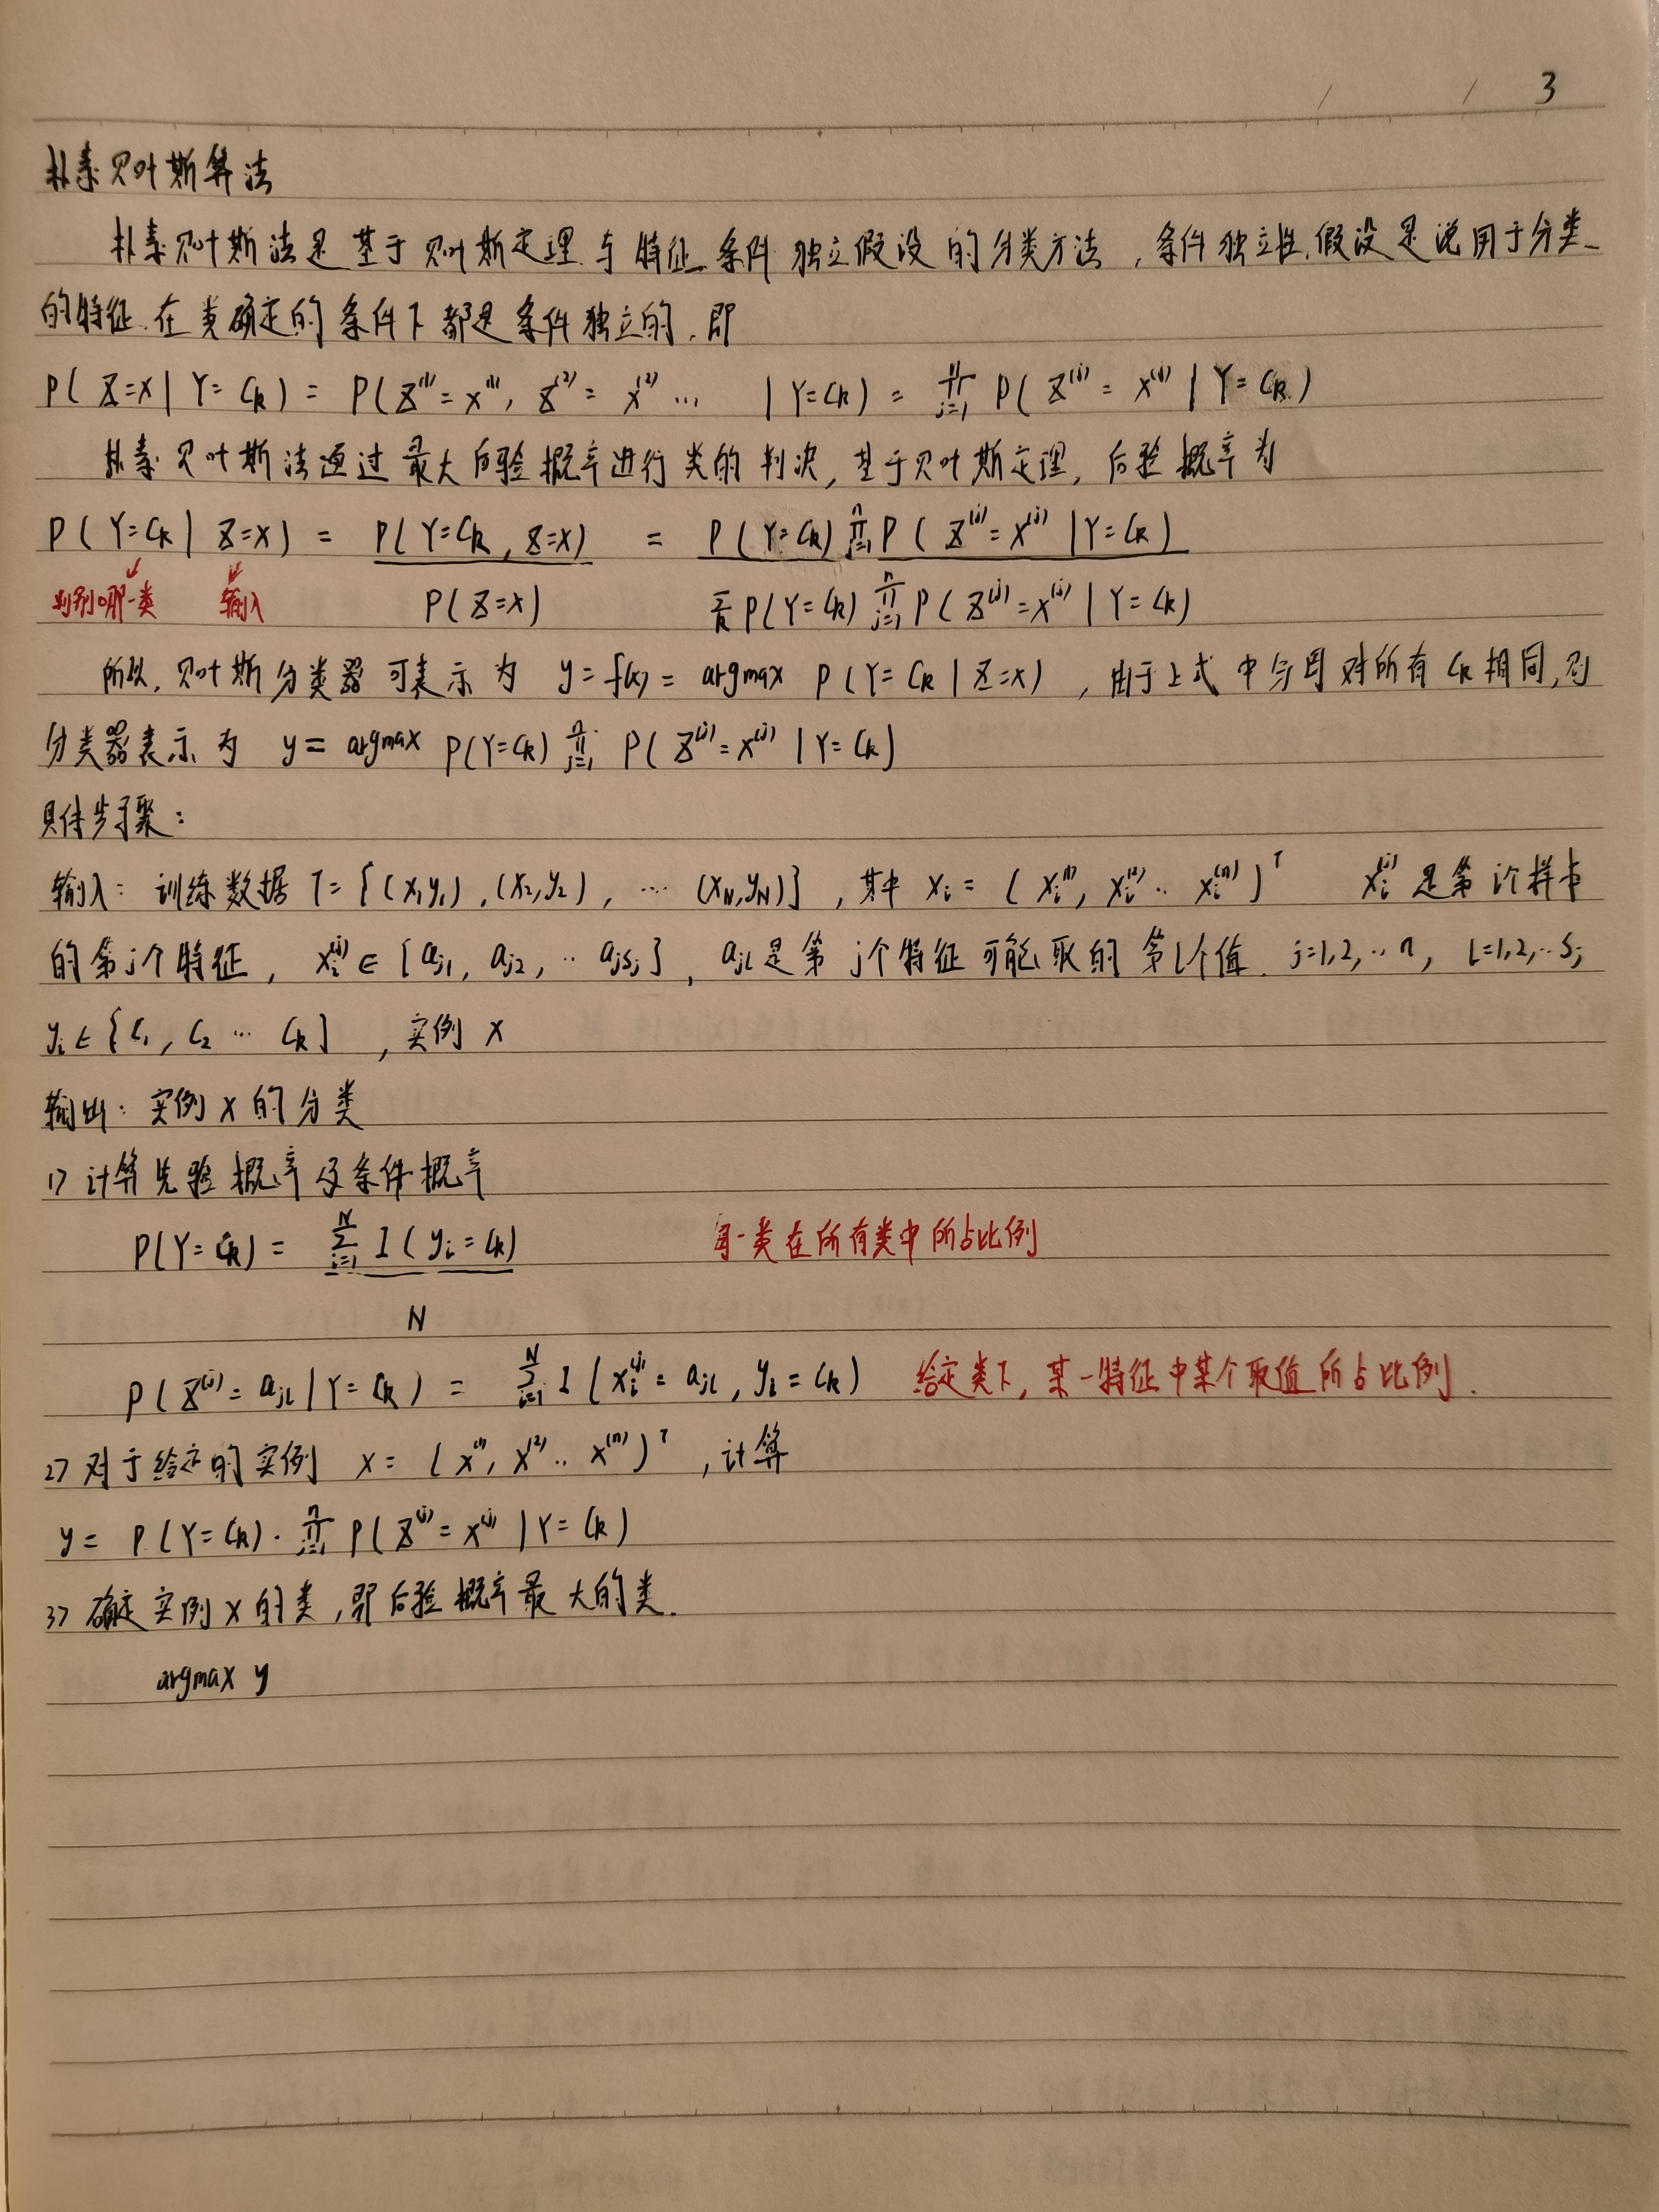 3
朴素贝叶斯算法
朴素贝叶斯法是基于贝叶斯定理与特征条件独立假设的分类方法,条件独立性假设是说用于分类
的特征在类确定的条件下都是条件独立的,即
P(Z=x|Y=Ck) = P(Z⁽¹⁾=x⁽¹⁾, Z⁽²⁾=x⁽²⁾… |Y=Ck) = ∏ⁿⱼ₌₁ P(Z⁽ʲ⁾=x⁽ʲ⁾|Y=Ck)
朴素贝叶斯法通过最大后验概率进行类的判决,基于贝叶斯定理,后验概率为
P(Y=Ck|Z=x) = P(Y=Ck, Z=x) = P(Y=Ck) ∏ⁿⱼ₌₁ P(Z⁽ʲ⁾=x⁽ʲ⁾|Y=Ck)
判别哪一类 输入 P(Z=x) Σk P(Y=Ck) ∏ⁿⱼ₌₁ P(Z⁽ʲ⁾=x⁽ʲ⁾|Y=Ck)
所以,贝叶斯分类器可表示为 y=f(x)= argmax P(Y=Ck|Z=x),由于上式中分母对所有Ck相同,则
分类器表示为 y= argmax P(Y=Ck) ∏ⁿⱼ₌₁ P(Z⁽ʲ⁾=x⁽ʲ⁾|Y=Ck)
具体步骤:
输入: 训练数据 T={(x₁y₁),(x₂,y₂), … (xN,yN)},其中 xᵢ=(xᵢ⁽¹⁾, xᵢ⁽²⁾.. xᵢ⁽ⁿ⁾)ᵀ xᵢ⁽ʲ⁾是第i个样本
的第j个特征, xᵢ⁽ʲ⁾∈{aj1, aj2, .. ajsj}, ajl是第j个特征可能取的第l个值. j=1,2,..n, l=1,2,..Sj
yᵢ∈{C₁, C₂ … Ck} ,实例 x
输出: 实例x的分类
1) 计算先验概率及条件概率
P(Y=Ck) = Σᴺᵢ₌₁ I(yᵢ=Ck) 每一类在所有类中所占比例
N
P(Z⁽ʲ⁾=ajl|Y=Ck) = Σᴺᵢ₌₁ I(xᵢ⁽ʲ⁾=ajl, yᵢ=Ck) 给定类下,某一特征中某个取值所占比例.
2) 对于给定的实例 x=(x⁽¹⁾, x⁽²⁾.. x⁽ⁿ⁾)ᵀ ,计算
y= P(Y=Ck)·∏ⁿⱼ₌₁ P(Z⁽ʲ⁾=x⁽ʲ⁾|Y=Ck)
3) 确定实例x的类,即后验概率最大的类.
argmax y